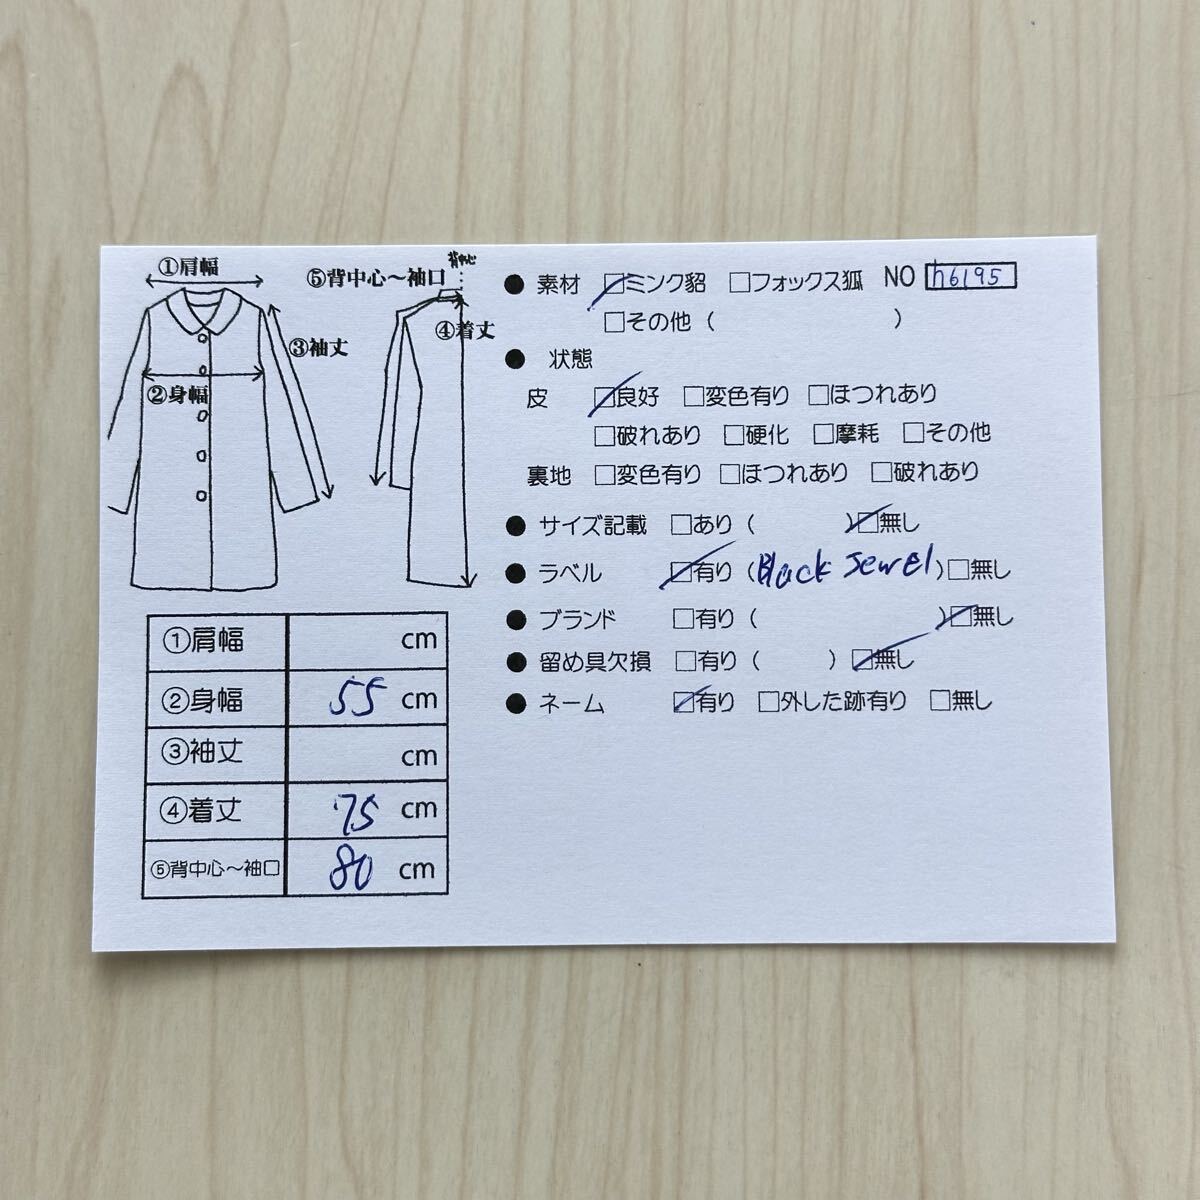 ①肩幅
⑤背中心～袖口
背中心
④着丈
③袖丈
②身幅
①肩幅 cm
②身幅 55 cm
③袖丈 cm
④着丈 75 cm
⑤背中心～袖口 80 cm
● 素材 □ミンク貂 □フォックス狐 NO h6195
□その他 ( )
● 状態
皮 □良好 □変色有り □ほつれあり
□破れあり □硬化 □摩耗 □その他
裏地 □変色有り □ほつれあり □破れあり
● サイズ記載 □あり ( ) □無し
● ラベル □有り (Black Jewel) □無し
● ブランド □有り ( ) □無し
● 留め具欠損 □有り ( ) □無し
● ネーム □有り □外した跡有り □無し